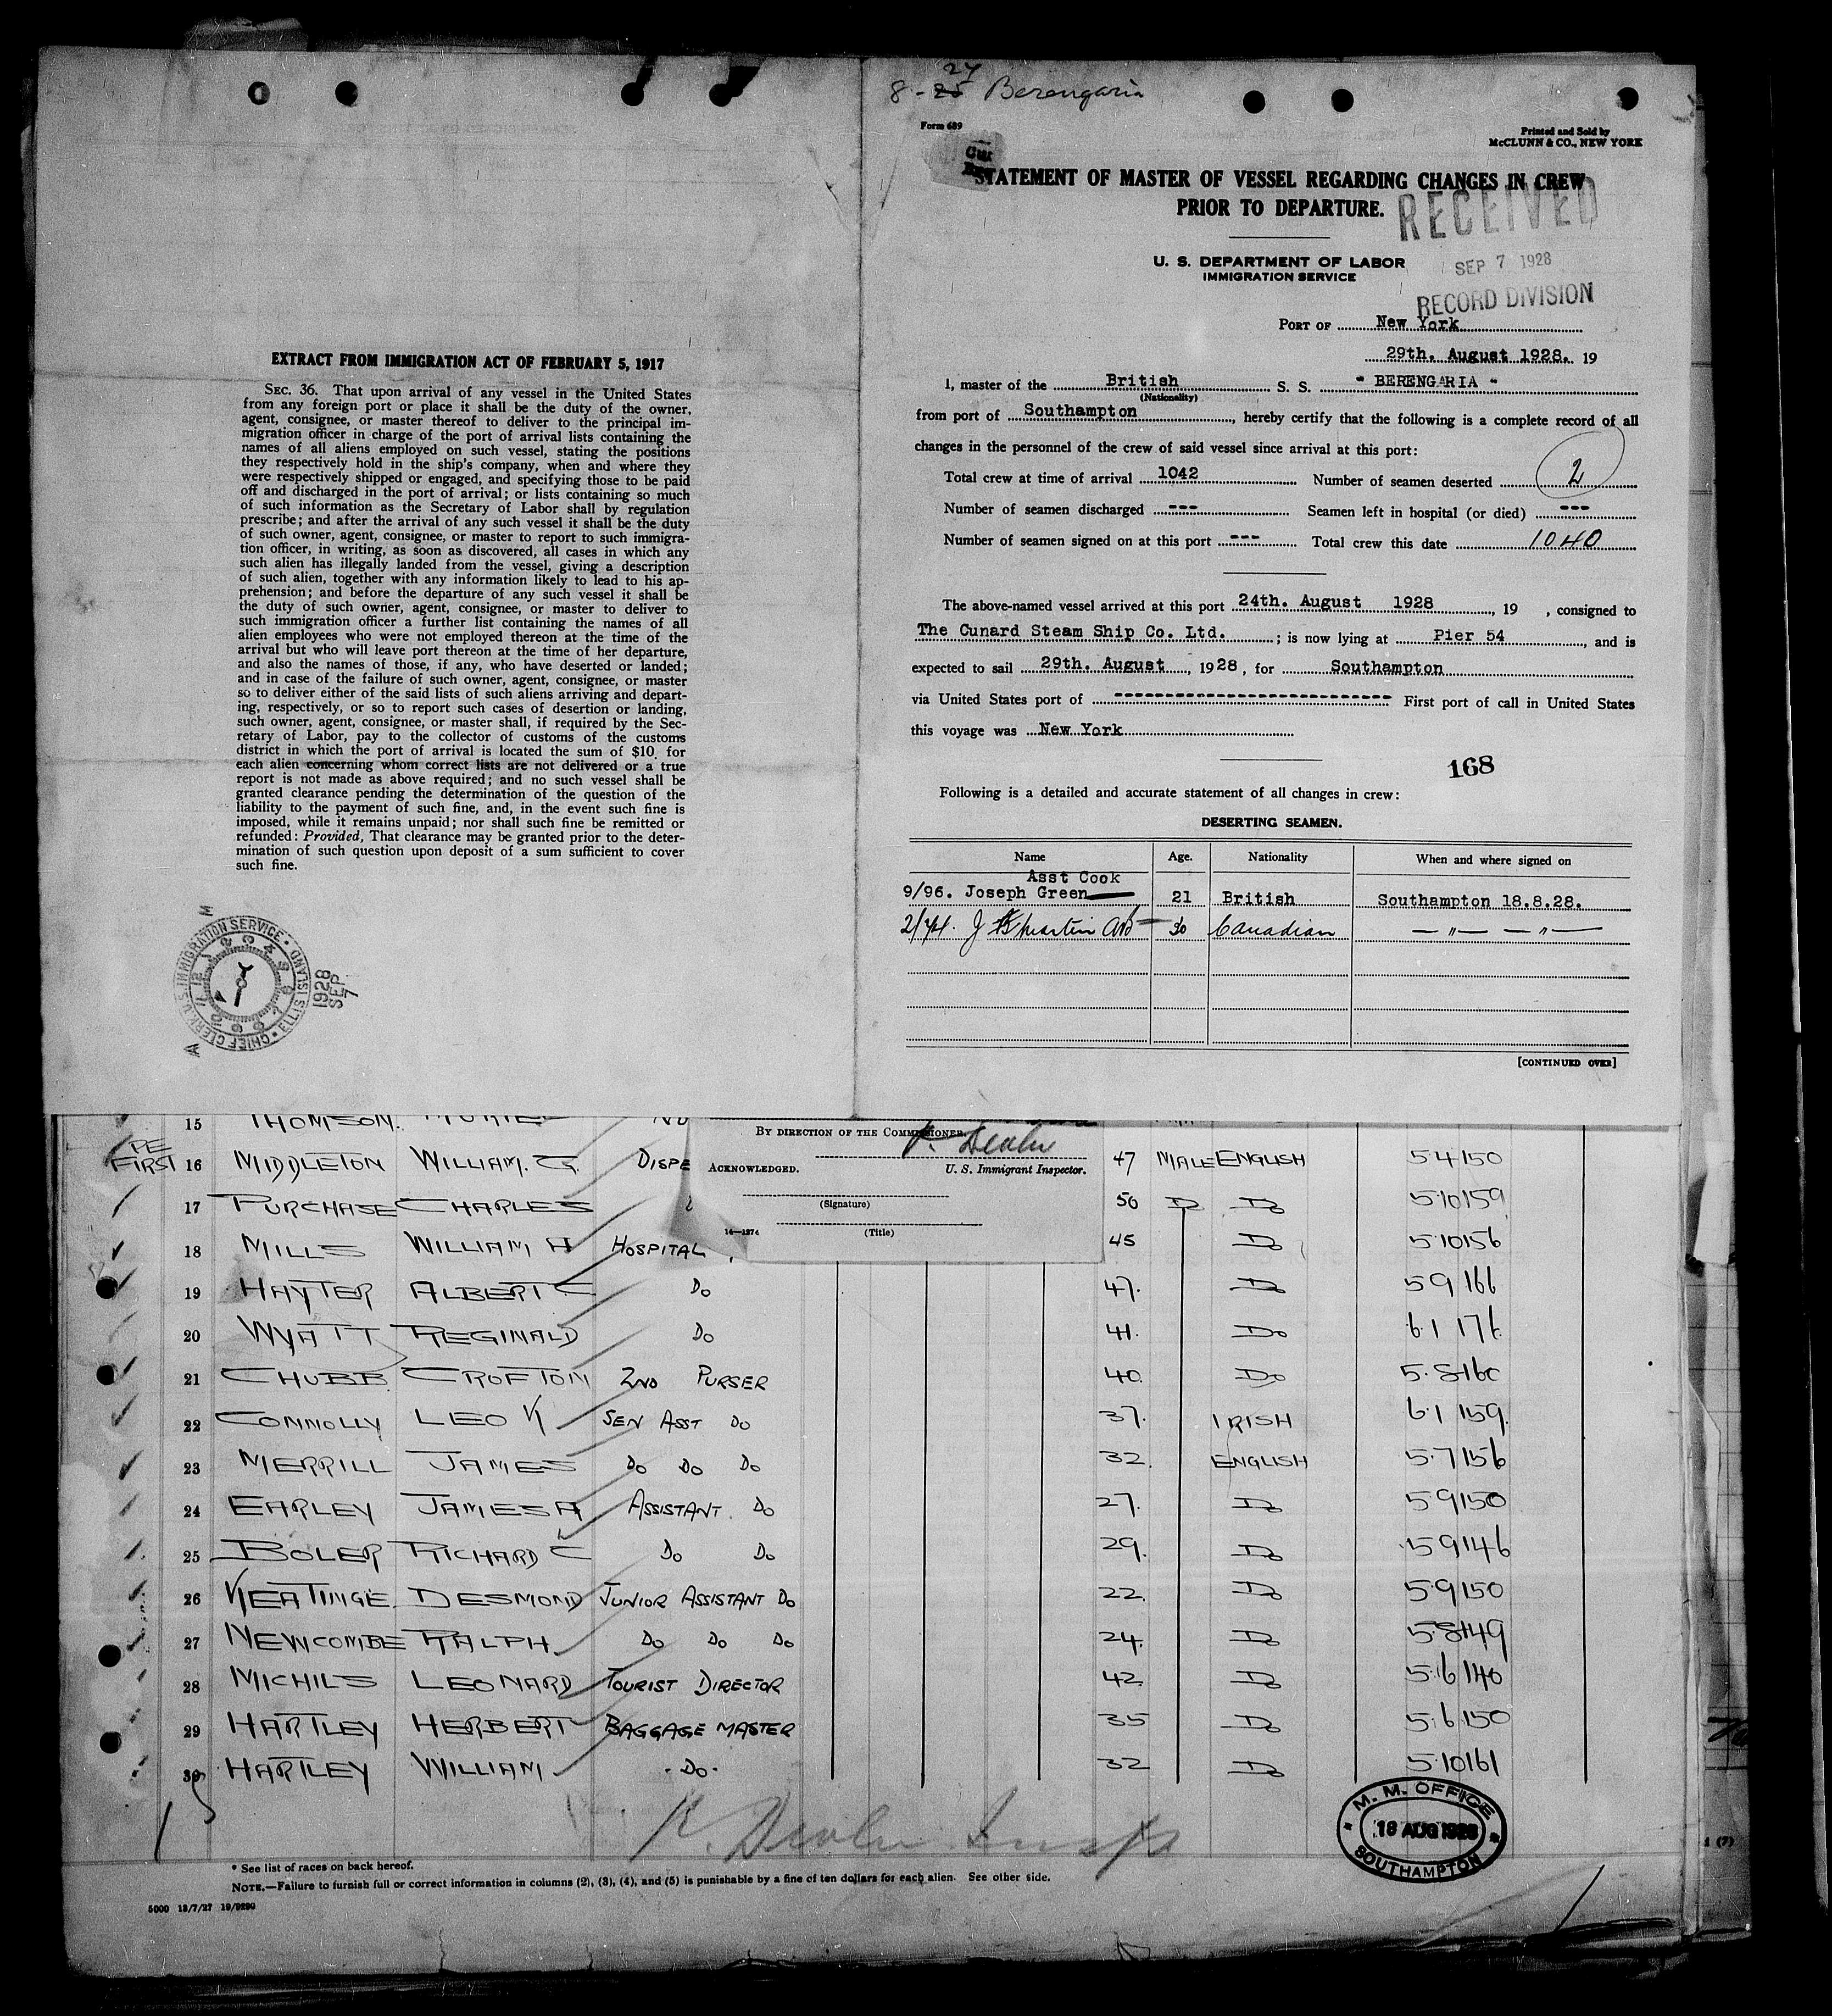 8-25 27 Berengaria
Form 689
Printed and Sold by
McCLUNN & CO., NEW YORK
STATEMENT OF MASTER OF VESSEL REGARDING CHANGES IN CREW
PRIOR TO DEPARTURE.
RECEIVED
SEP 7 1928
RECORD DIVISION
U. S. DEPARTMENT OF LABOR
IMMIGRATION SERVICE
PORT OF New York
29th. August 1928. 19
I, master of the British S. S. " BERENGARIA "
(Nationality)
from port of Southampton, hereby certify that the following is a complete record of all
changes in the personnel of the crew of said vessel since arrival at this port:
Total crew at time of arrival 1042 Number of seamen deserted 2
Number of seamen discharged --- Seamen left in hospital (or died) ---
Number of seamen signed on at this port --- Total crew this date 1040
The above-named vessel arrived at this port 24th. August 1928, 19 , consigned to
The Cunard Steam Ship Co. Ltd. ; is now lying at Pier 54, and is
expected to sail 29th. August, 1928, for Southampton
via United States port of --- First port of call in United States
this voyage was New York
168
Following is a detailed and accurate statement of all changes in crew:
DESERTING SEAMEN.
Name Age. Nationality When and where signed on
Asst Cook
9/96. Joseph Green 21 British Southampton 18.8.28.
2/74. J Martin AB 30 Canadian — " — — " —
[CONTINUED OVER]
EXTRACT FROM IMMIGRATION ACT OF FEBRUARY 5, 1917
SEC. 36. That upon arrival of any vessel in the United States
from any foreign port or place it shall be the duty of the owner,
agent, consignee, or master thereof to deliver to the principal im-
migration officer in charge of the port of arrival lists containing the
names of all aliens employed on such vessel, stating the positions
they respectively hold in the ship's company, when and where they
were respectively shipped or engaged, and specifying those to be paid
off and discharged in the port of arrival; or lists containing so much
of such information as the Secretary of Labor shall by regulation
prescribe; and after the arrival of any such vessel it shall be the duty
of such owner, agent, consignee, or master to report to such immigra-
tion officer, in writing, as soon as discovered, all cases in which any
such alien has illegally landed from the vessel, giving a description
of such alien, together with any information likely to lead to his ap-
prehension; and before the departure of any such vessel it shall be
the duty of such owner, agent, consignee, or master to deliver to
such immigration officer a further list containing the names of all
alien employees who were not employed thereon at the time of the
arrival but who will leave port thereon at the time of her departure,
and also the names of those, if any, who have deserted or landed;
and in case of the failure of such owner, agent, consignee, or master
so to deliver either of the said lists of such aliens arriving and depart-
ing, respectively, or so to report such cases of desertion or landing,
such owner, agent, consignee, or master shall, if required by the Sec-
retary of Labor, pay to the collector of customs of the customs
district in which the port of arrival is located the sum of $10 for
each alien concerning whom correct lists are not delivered or a true
report is not made as above required; and no such vessel shall be
granted clearance pending the determination of the question of the
liability to the payment of such fine, and, in the event such fine is
imposed, while it remains unpaid; nor shall such fine be remitted or
refunded: Provided, That clearance may be granted prior to the deter-
mination of such question upon deposit of a sum sufficient to cover
such fine.
CHIEF CLERK U.S. IMMIGRATION SERVICE ELLIS ISLAND
1928 SEP 7
BY DIRECTION OF THE COMMISSIONER.
ACKNOWLEDGED. U. S. Immigrant Inspector.
(Signature)
14—1274 (Title)
15 THOMSON.
16 MIDDLETON WILLIAM. G. DISPE 47 MALE ENGLISH 5 4 150
17 PURCHASE CHARLES 50 Do Do 5 10 159
18 MILLS WILLIAM H HOSPITAL 45 Do 5 10 156
19 HAYTER ALBERT C Do 47. Do 5 9 166
20 WYATT REGINALD Do 41. Do 6 1 176
21 CHUBB CROFTON 2ND PURSER 40. Do 5. 8 160
22 CONNOLLY LEO K SEN ASST Do 37. IRISH 6 1 159.
23 MERRILL JAMES Do Do Do 32. ENGLISH 5 7 156
24 EARLEY JAMES A ASSISTANT. Do 27. Do 5 9 150
25 BOLER RICHARD C Do Do 29. Do 5 9 146
26 KEATINGE. DESMOND JUNIOR ASSISTANT Do 22. Do 5 9 150
27 NEWCOMBE RALPH Do Do Do 24. Do 5 8 149
28 MICHILS LEONARD TOURIST DIRECTOR 42. Do 5 6 140
29 HARTLEY HERBERT BAGGAGE MASTER 35 Do 5 6 150
30 HARTLEY WILLIAM -Do- 32 Do 5 10 161
M. M. OFFICE
18 AUG 1928
SOUTHAMPTON
* See list of races on back hereof.
NOTE.—Failure to furnish full or correct information in columns (2), (3), (4), and (5) is punishable by a fine of ten dollars for each alien. See other side.
5000 13/7/27 19/9290